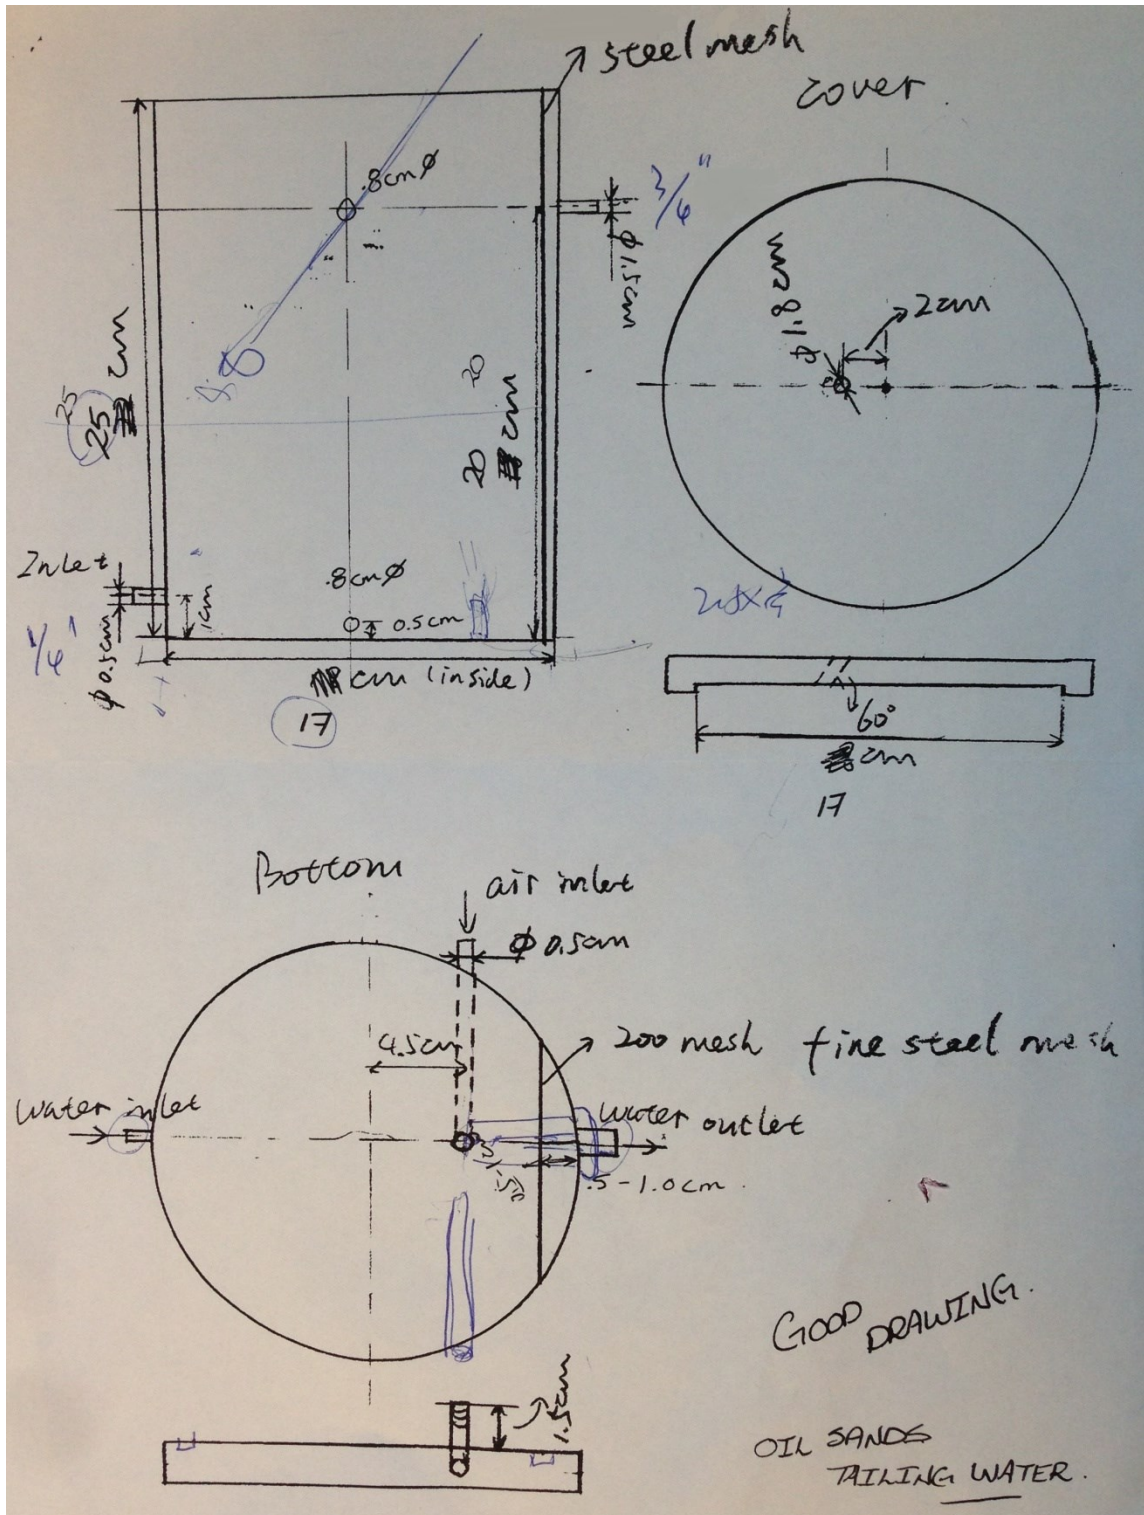 steel mesh
cover
.8cm ø
3/4"
ø 1.5cm
ø 1.8cm
2cm
25
25 cm
20
20 cm
Inlet
1/4"
ø 0.5cm
1cm
.8cm ø
0.5cm
cm (inside)
17
60°
cm
17
Bottom
air inlet
ø 0.5cm
4.5cm
200 mesh fine steel mesh
water inlet
water outlet
.5-1.0cm
1.5cm
GOOD DRAWING.
OIL SANDS
TAILING WATER.